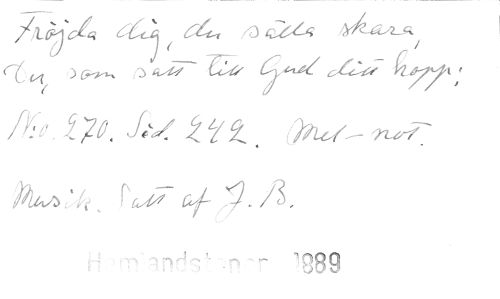 Fröjda dig, du sälla skara,
Du, som satt till Gud ditt hopp;
N:o. 270. Sid. 242. Mel-not.
Musik. Satt af J. B.
Hemlandstoner 1889